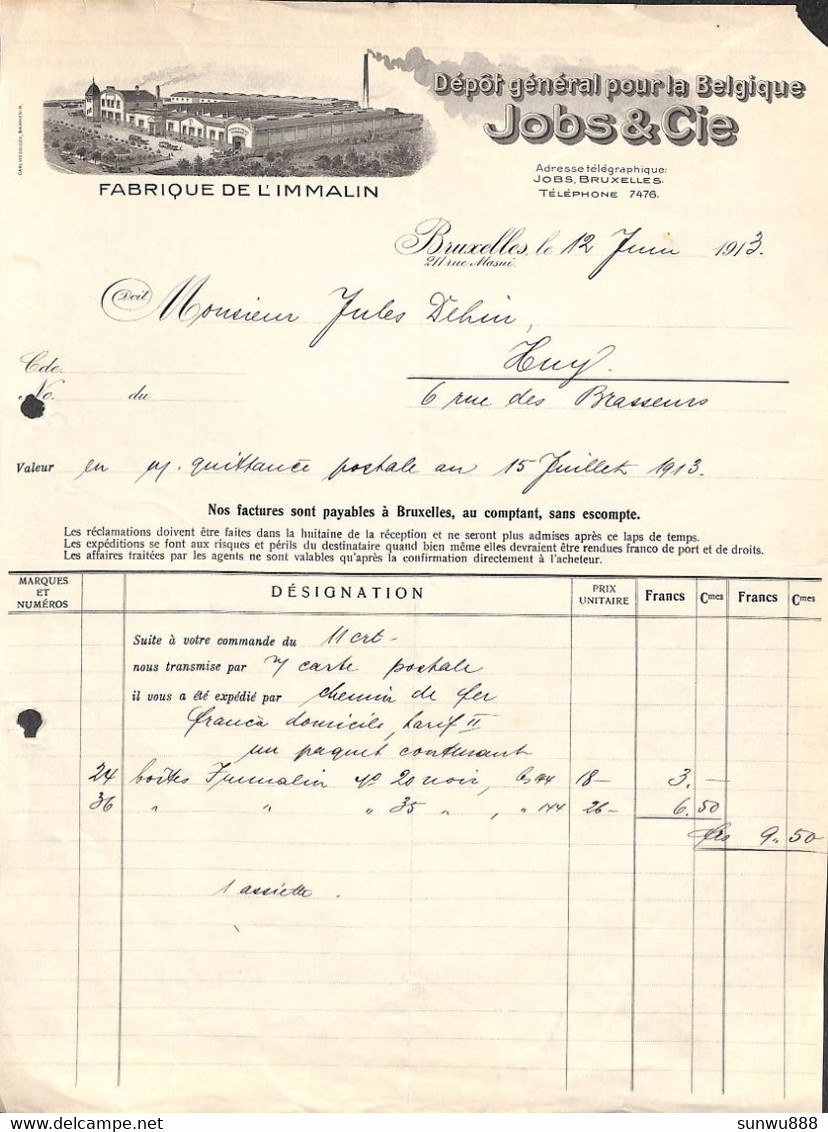 Dépôt général pour la Belgique
Jobs & Cie
FABRIQUE DE L'IMMALIN
Adresse télégraphique:
JOBS, BRUXELLES.
TÉLÉPHONE 7476.
Bruxelles, le 12 Juin 1913.
211 rue Masui.
Doit Monsieur Jules Dehin,
Huy.
Cde.
No. du
6 rue des Brasseurs
Valeur en n/. quittance postale au 15 Juillet 1913.
Nos factures sont payables à Bruxelles, au comptant, sans escompte.
Les réclamations doivent être faites dans la huitaine de la réception et ne seront plus admises après ce laps de temps.
Les expéditions se font aux risques et périls du destinataire quand bien même elles devraient être rendues franco de port et de droits.
Les affaires traitées par les agents ne sont valables qu'après la confirmation directement à l'acheteur.
MARQUES ET NUMÉROS DÉSIGNATION PRIX UNITAIRE Francs Cmes Francs Cmes
Suite à votre commande du 11 crt-
nous transmise par carte postale
il vous a été expédié par chemin de fer
franco domicile, tarif II
un paquet contenant
24 boîtes Immalin No 20 noir, 144 18- 3. -
36 " " " 35 " , " 144 26- 6. 50
frs 9 " 50
1 assiette.
sunwu888